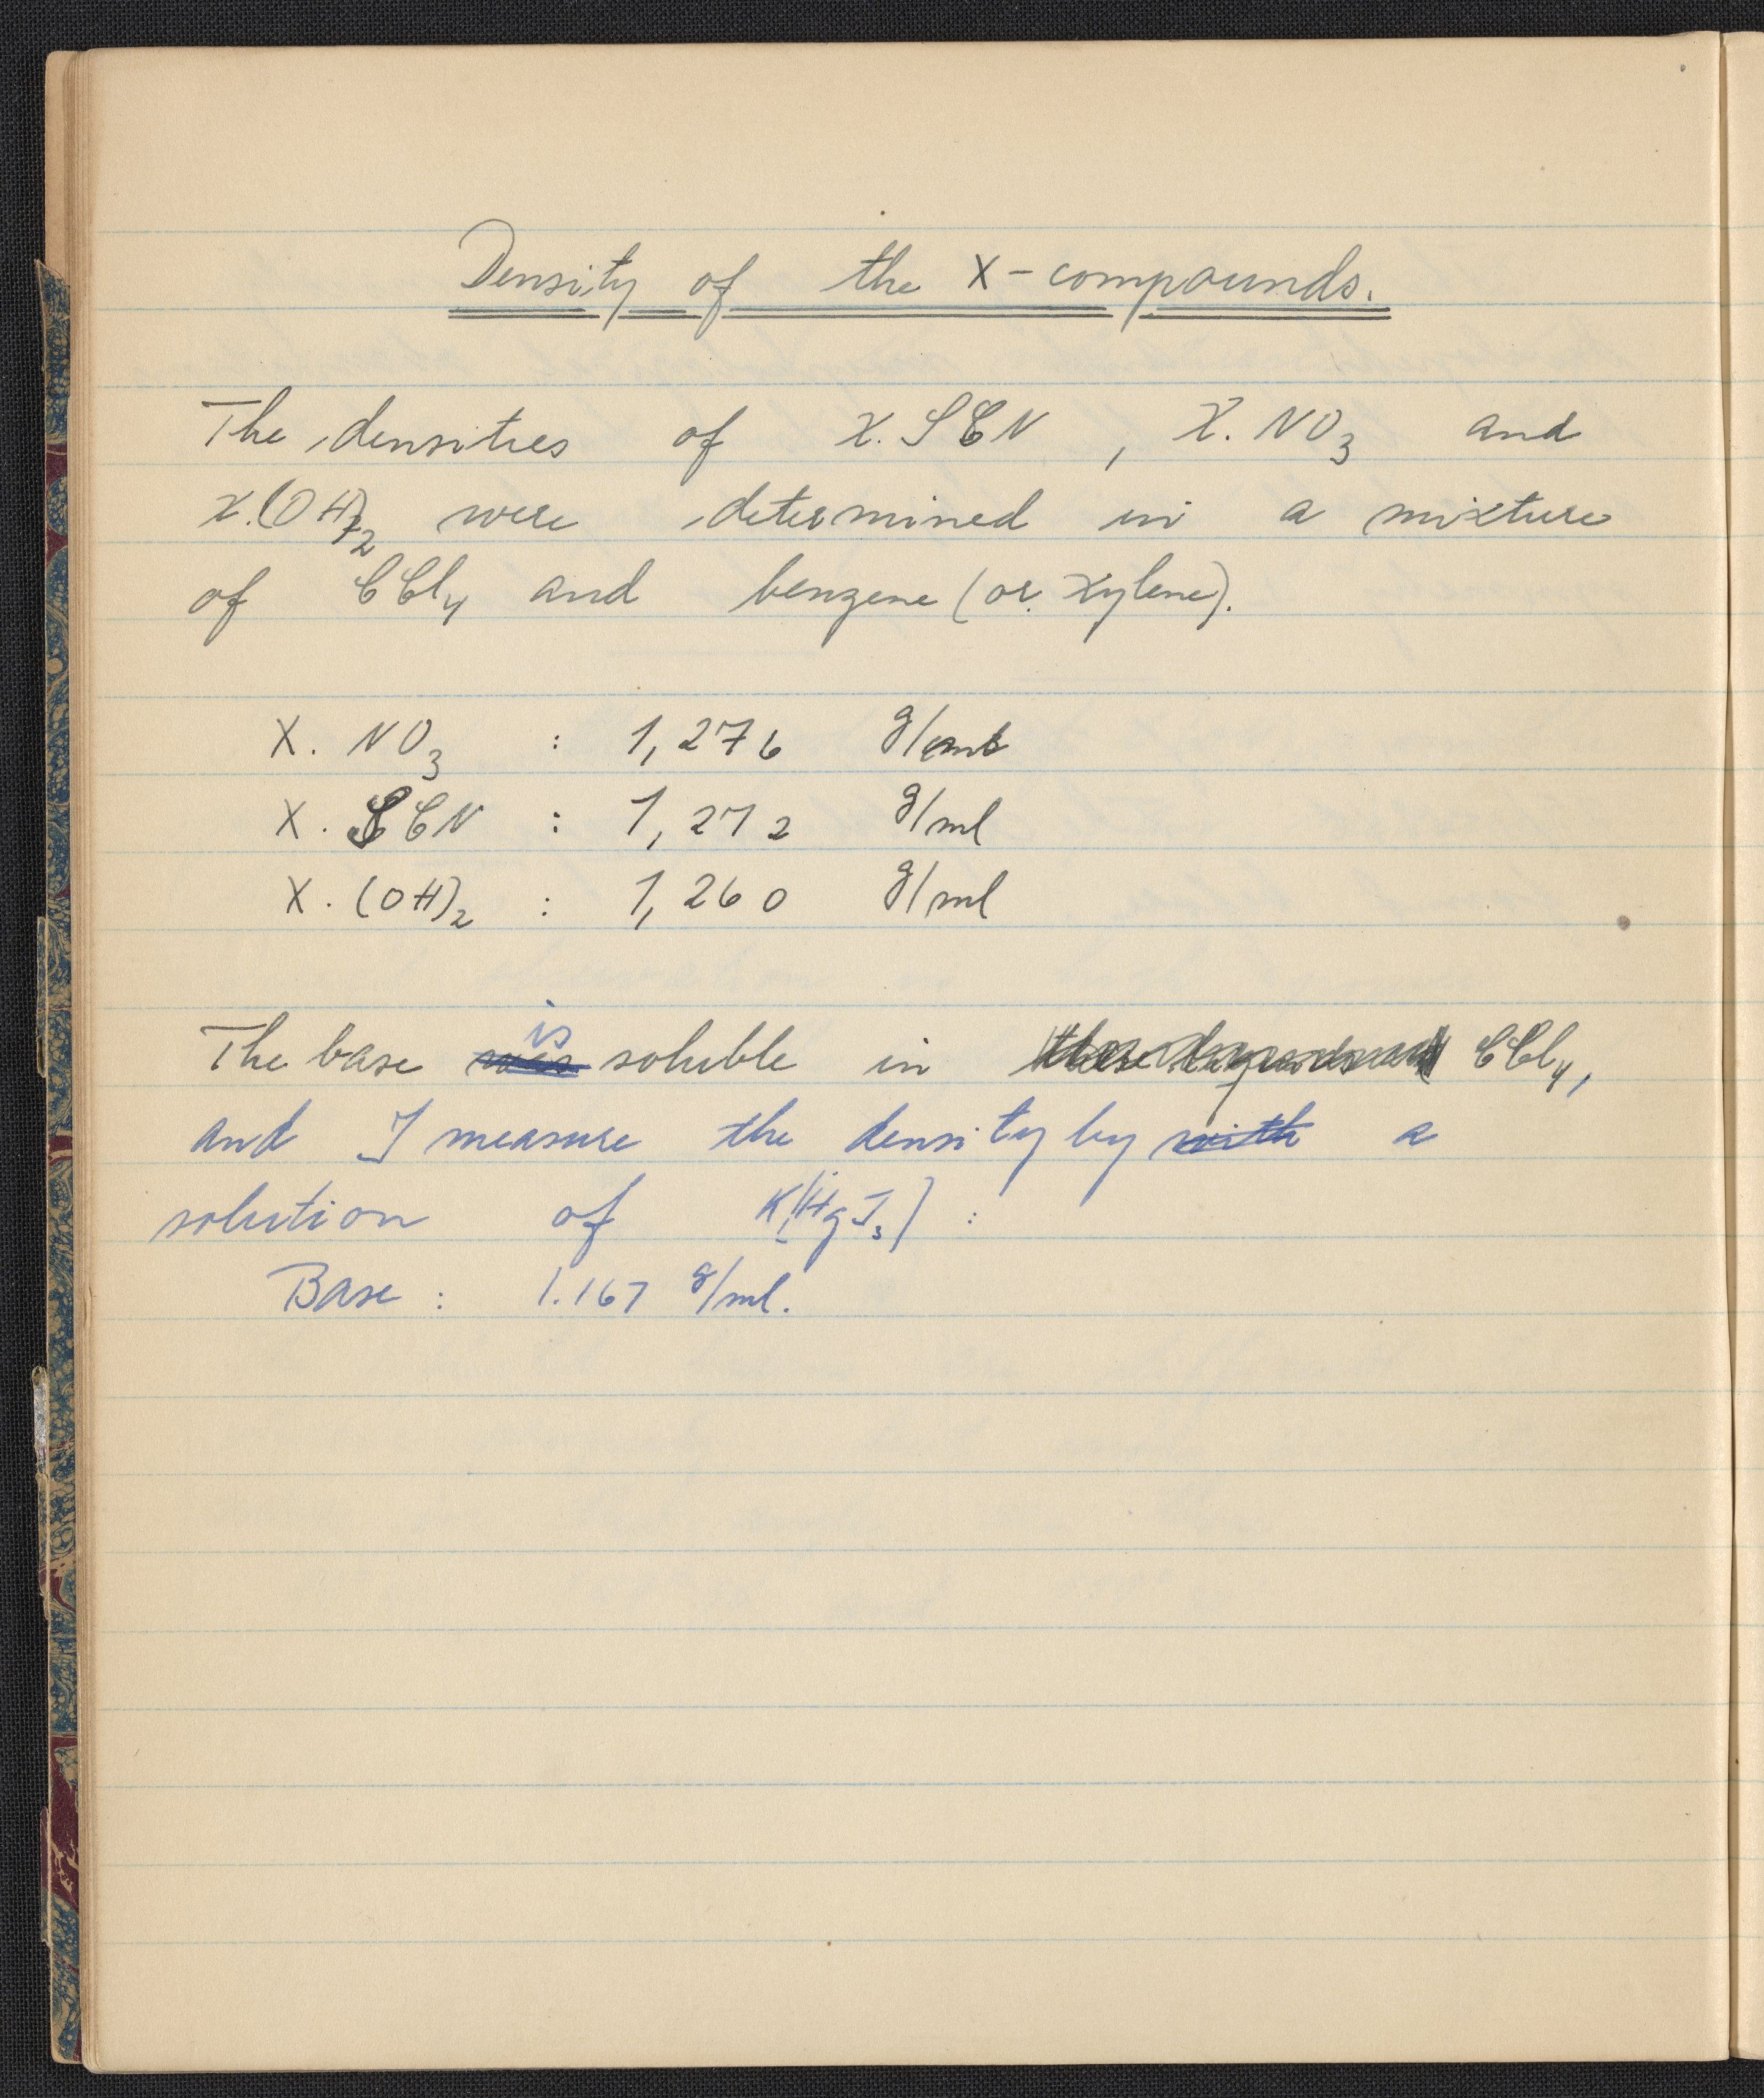 Density of the X-compounds.
The densities of X.SCN , X.NO3 and
X.(OH)2 were determined in a mixture
of CCl4 and benzene (or xylene).
X. NO3 : 1,276 g/ml
X. SCN : 1,272 g/ml
X. (OH)2 : 1,260 g/ml
is
The base was soluble in CCl4,
and I measure the density by with a
solution of K[HgJ3] :
Base : 1.167 g/ml.